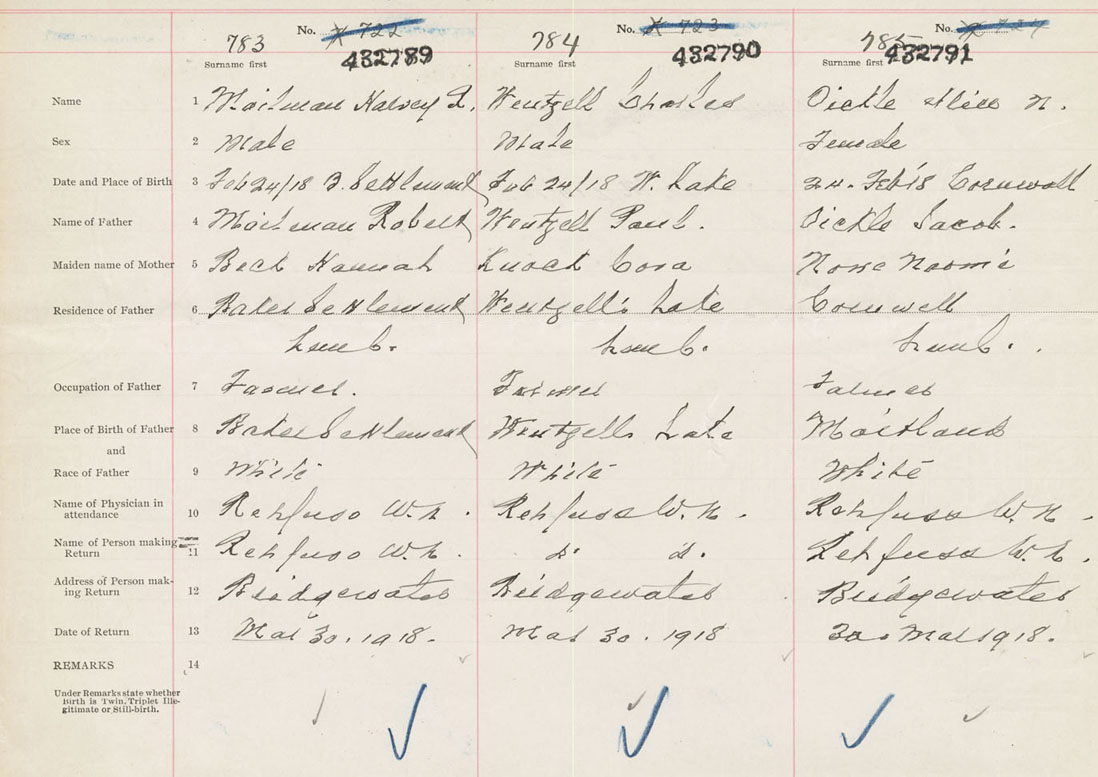 No. X 722 No. X 723 No. X 724
783 784 785
432789 432790 432791
Surname first Surname first Surname first
Name 1 Mailman Harvey L. Wentzell Charles Oickle N.
Sex 2 Male Male Female
Date and Place of Birth 3 Feb 24/18 B. Settlement Feb 24/18 W. Lake 24. Feb 18 Cornwall
Name of Father 4 Mailman Robert Wentzell Paul. Oickle Jacob.
Maiden name of Mother 5 Beck Hannah Knock Cora Naomi
Residence of Father 6 Baker Settlement Wentzell's Lake Cornwell
Lunb. Lunb. Lunb.
Occupation of Father 7 Farmer. Farmer Farmer
Place of Birth of Father 8 Baker Settlement Wentzells Lake Maitland
and
Race of Father 9 White White White
Name of Physician in
attendance 10 Rehfuss W. N. Rehfuss W. N. Rehfuss W. N.
Name of Person making
Return 11 Rehfuss W. N. do. do. Rehfuss W. N.
Address of Person mak-
ing Return 12 Bridgewater Bridgewater Bridgewater
Date of Return 13 Mar 30. 1918. Mar 30. 1918 30. Mar 1918.
REMARKS 14
Under Remarks state whether
Birth is Twin, Triplet Ille-
gitimate or Still-birth.